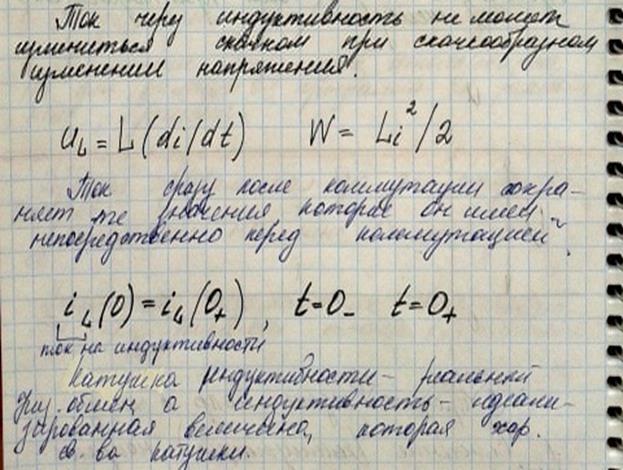 Ток через индуктивность не может
измениться скачком при скачкообразном
изменении напряжения.
u_L = L(di/dt) W = Li²/2
Ток сразу после коммутации сохра-
няет те значения которые он имел
непосредственно перед коммутацией
i_L(0) = i_L(0₊), t=0₋ t=0₊
ток на индуктивности
Катушка индуктивности – реальный
физ. а индуктивность – идеали-
зированная величина, которая хар.
св-ва катушки.